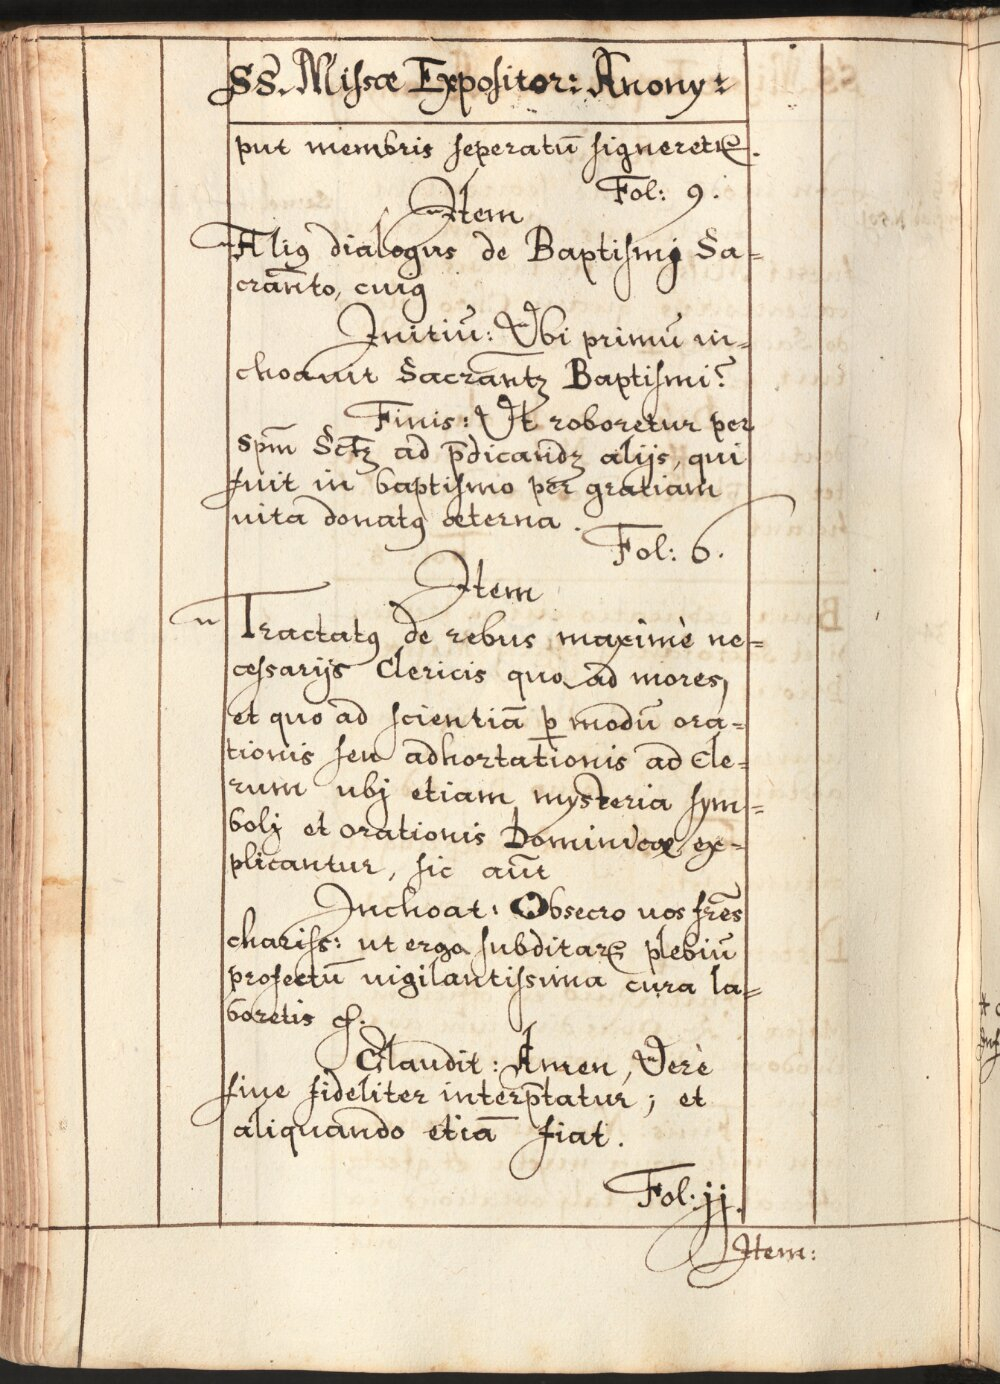 SS. Missæ Expositor: Anony:
put membris seperatũ signeretur.
Fol: 9.
Item
Aliꝰ dialogus de Baptismi Sa=
crañto, cuiꝰ
Initiũ: Vbi primũ in=
choauit Sacrañtũ Baptismi?
Finis: Vt roboretur per
Spm̃ Sctũ ad p̃dicandũ alijs, qui
fuit in baptismo per gratiam
uita donatꝰ æterna.
Fol: 6.
Item
Tractatꝰ de rebus maximè ne=
cessarijs Clericis quo ad mores,
et quo ad scientiã ꝑ modũ ora=
tionis seu adhortationis ad Cle=
rum ubj etiam mysteria sym=
bolj et orationis Dominicæ ex=
plicantur, sic aũt
Inchoat: Obsecro uos frẽs
chariss: ut erga subditarũ plebiũ
profectũ uigilantissima cura la=
boretis &.
Claudit: Amen, Verè
siue fideliter interp̃tatur; et
aliquando etiã fiat.
Fol. jj.
Item: